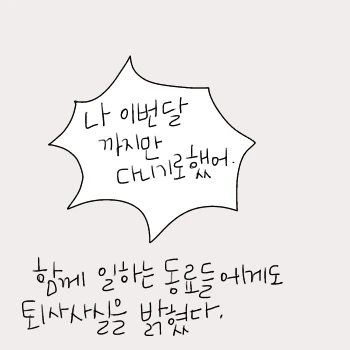 나 이번달
까지만
다니기로했어.
함께 일하는 동료들에게도
퇴사사실을 밝혔다.